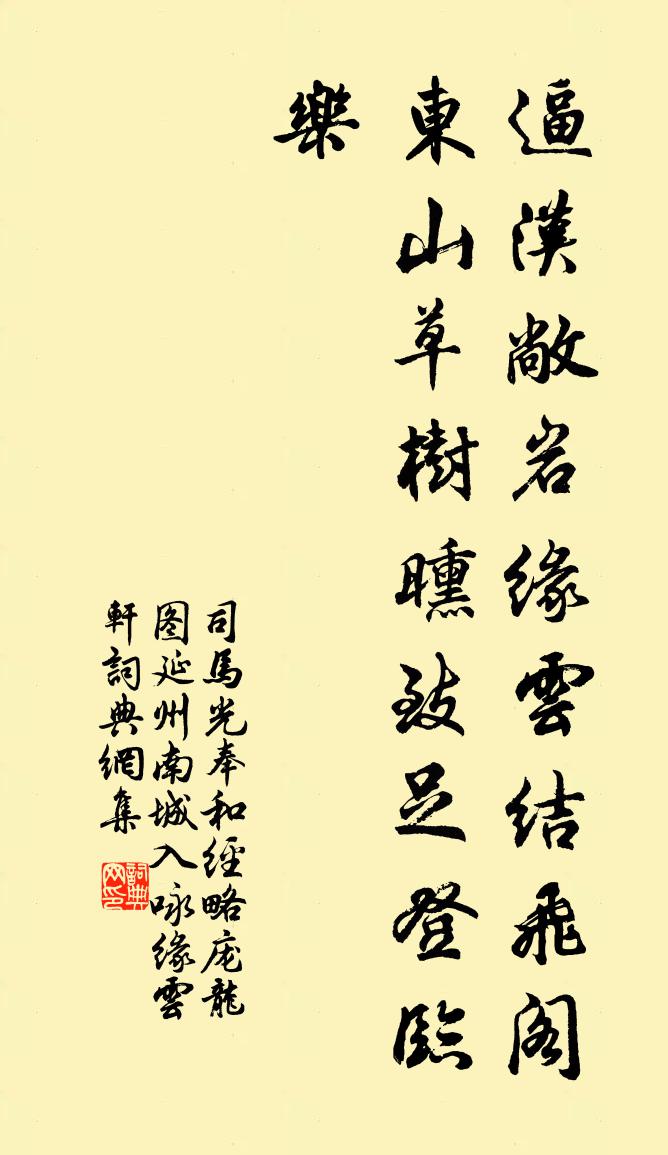 逼漢敞岩緣雲結飛閣
東山草樹曛致足登臨
樂
司馬光奉和經略庞龍
图延州南城入咏緣雲
軒詞典網集
詞典
网印